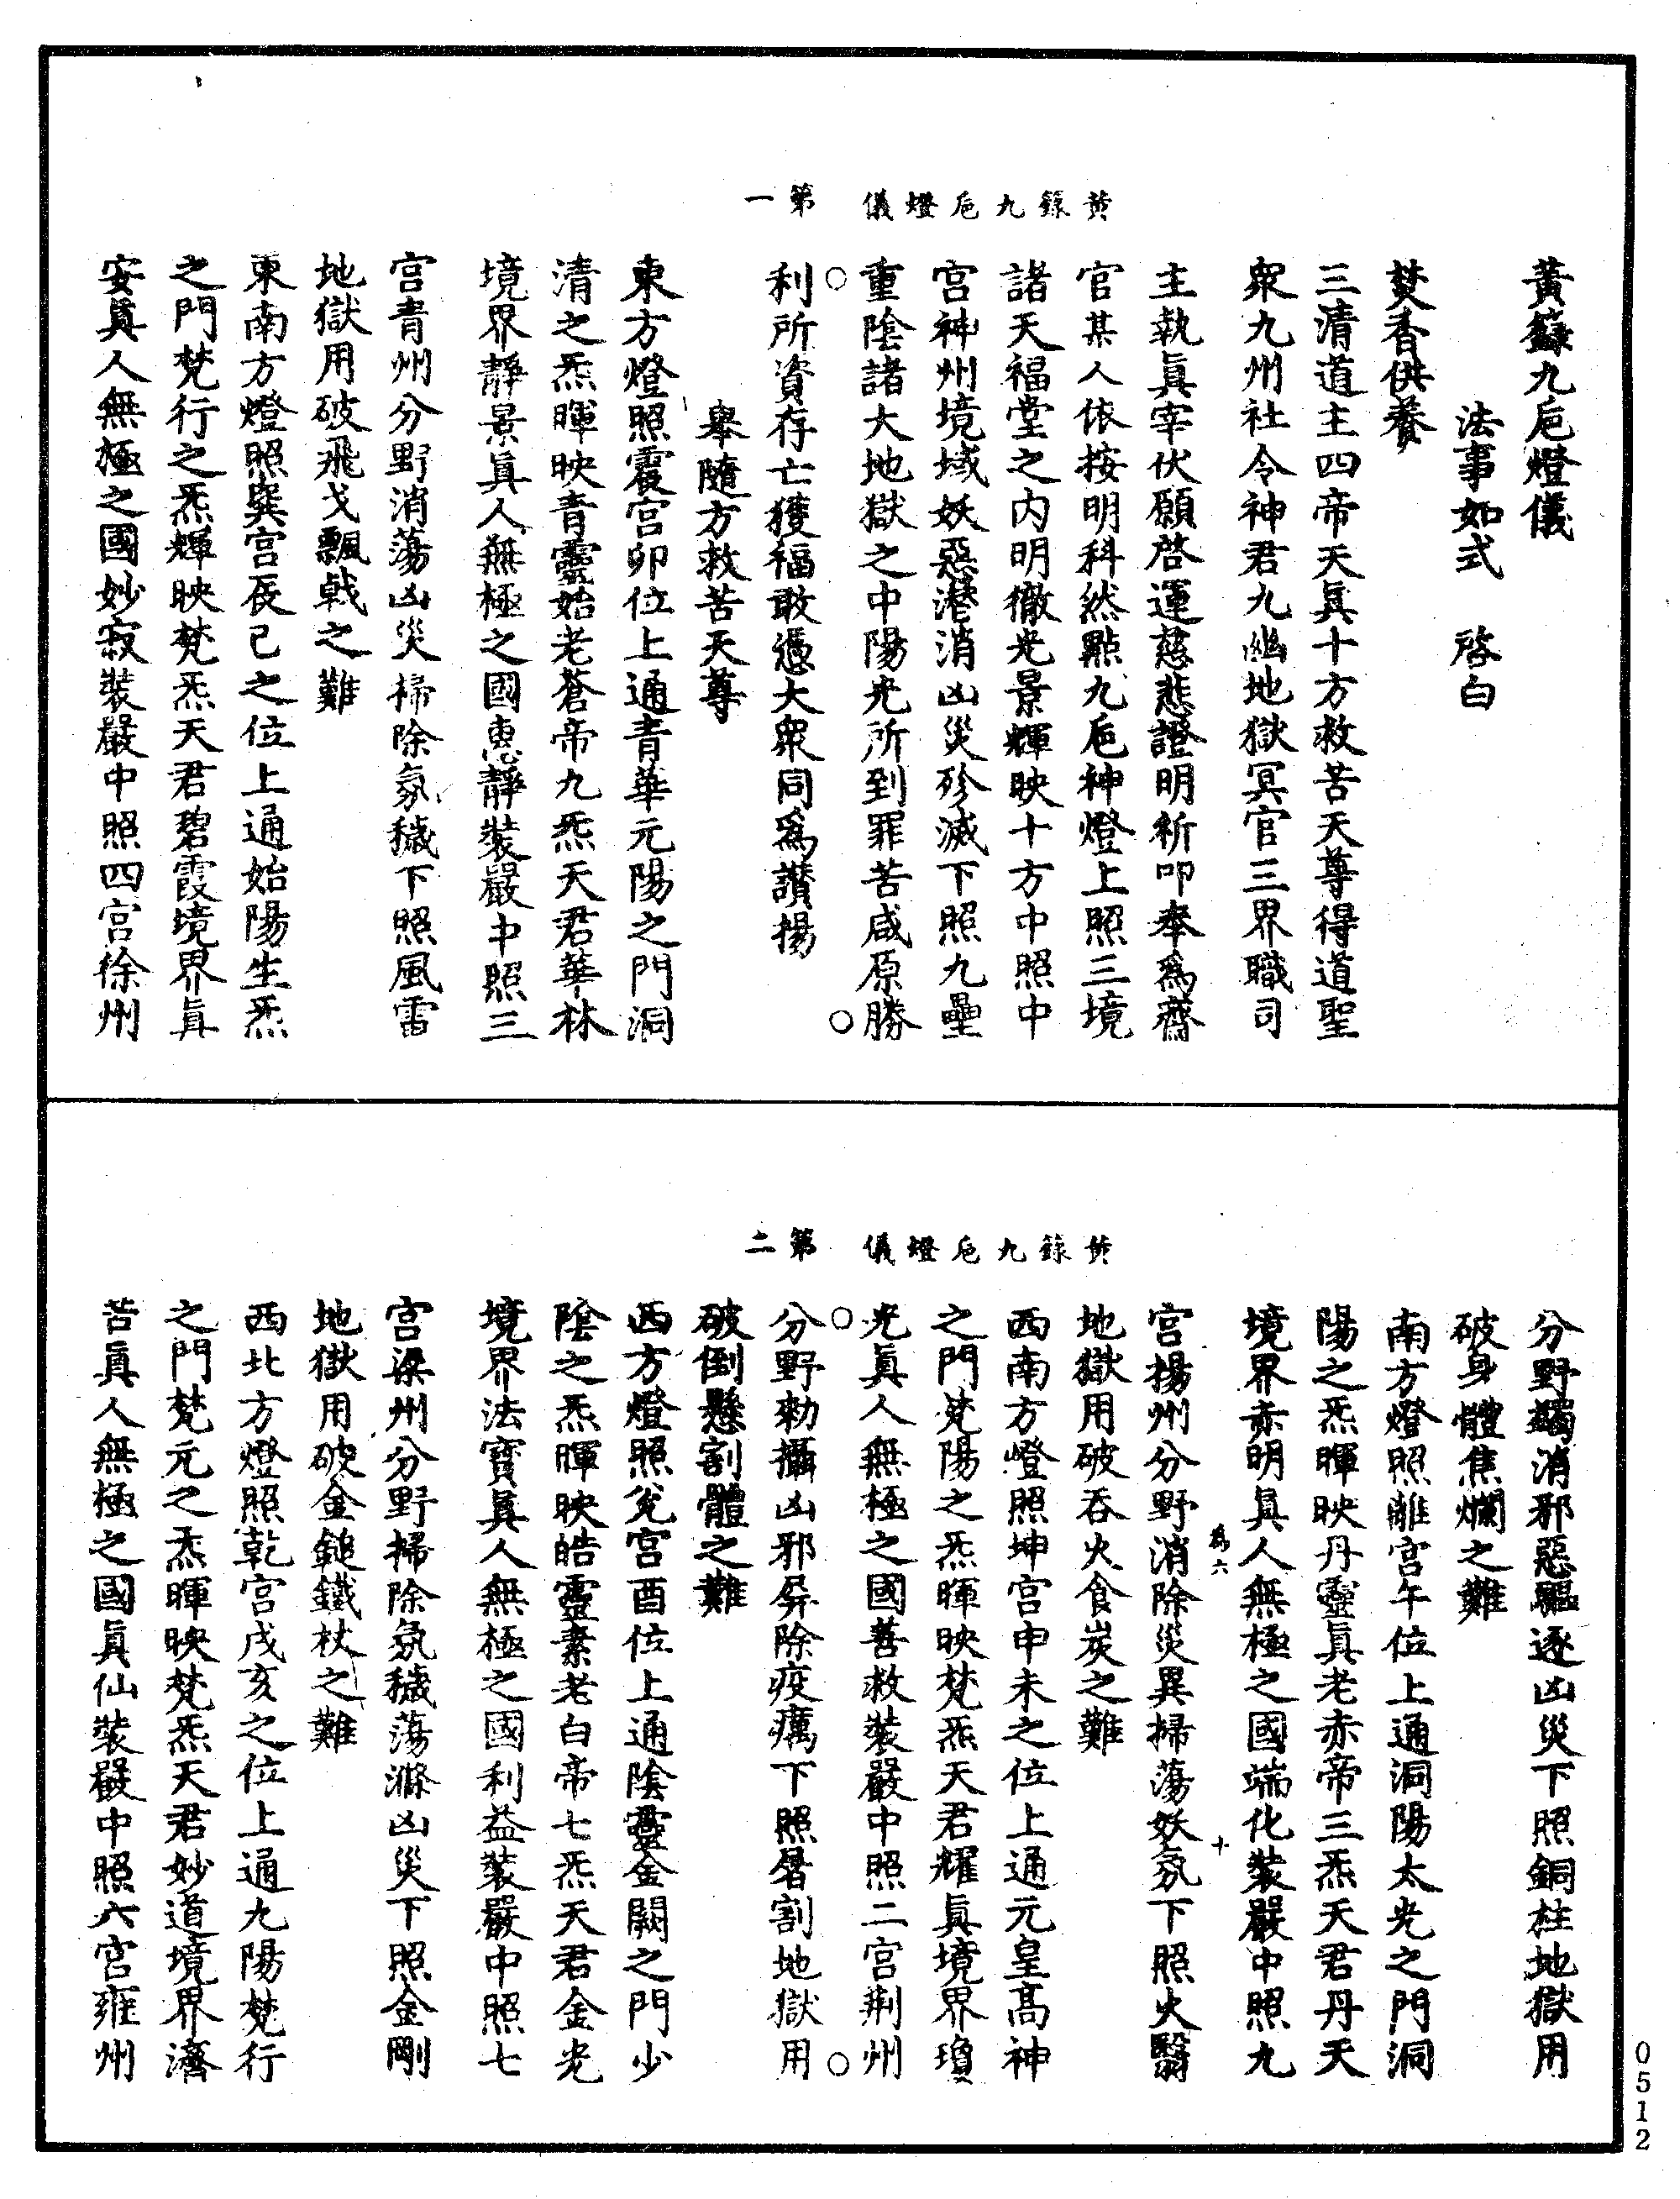 黃籙九巵燈儀
法事如式　啓白
焚香供養
三清道主四帝天眞十方救苦天尊得道聖
衆九州社令神君九幽地獄冥官三界職司
主執眞宰伏願啓運慈悲證明祈叩奉爲齋
官某人依按明科然點九巵神燈上照三境
諸天福堂之内明徹光景輝映十方中照中
宮神州境域妖惡潜消凶災殄滅下照九壘
重陰諸大地獄之中陽光所到罪苦咸原勝
黃籙九巵燈儀　第一
利所資存亡獲福敢憑大衆同爲讃揚
舉隨方救苦天尊
東方燈照震宮卯位上通青華元陽之門洞
清之炁暉映青靈始老蒼帝九炁天君華林
境界靜景眞人無極之國惠靜裝嚴中照三
宮青州分野消蕩凶災掃除氛穢下照風雷
地獄用破飛戈飄戟之難
東南方燈照巽宮辰巳之位上通始陽生炁
之門梵行之炁輝映梵炁天君碧霞境界眞
安眞人無極之國妙寂裝嚴中照四宮徐州
分野蠲消邪惡驅逐凶災下照銅柱地獄用
破身體焦爛之難
南方燈照離宮午位上通洞陽太光之門洞
陽之炁暉映丹靈眞老赤帝三炁天君丹天
境界赤明眞人無極之國端化裝嚴中照九
爲六　十
宮揚州分野消除災異掃蕩妖氛下照火翳
地獄用破吞火食炭之難
西南方燈照坤宮申未之位上通元皇高神
之門梵陽之炁暉映梵炁天君耀眞境界瓊
光眞人無極之國善救裝嚴中照二宮荆州
黃籙九巵燈儀　第二
分野勑攝凶邪屏除疫癘下照屠割地獄用
破倒懸割體之難
西方燈照兊宮酉位上通陰靈金闕之門少
陰之炁暉映皓靈素老白帝七炁天君金光
境界法寶眞人無極之國利益裝嚴中照七
宮梁州分野掃除氛穢蕩滌凶災下照金剛
地獄用破金鎚鐵杖之難
西北方燈照乾宮戌亥之位上通九陽梵行
之門梵元之炁暉映梵炁天君妙道境界濟
苦眞人無極之國眞仙裝嚴中照六宮雍州
0512